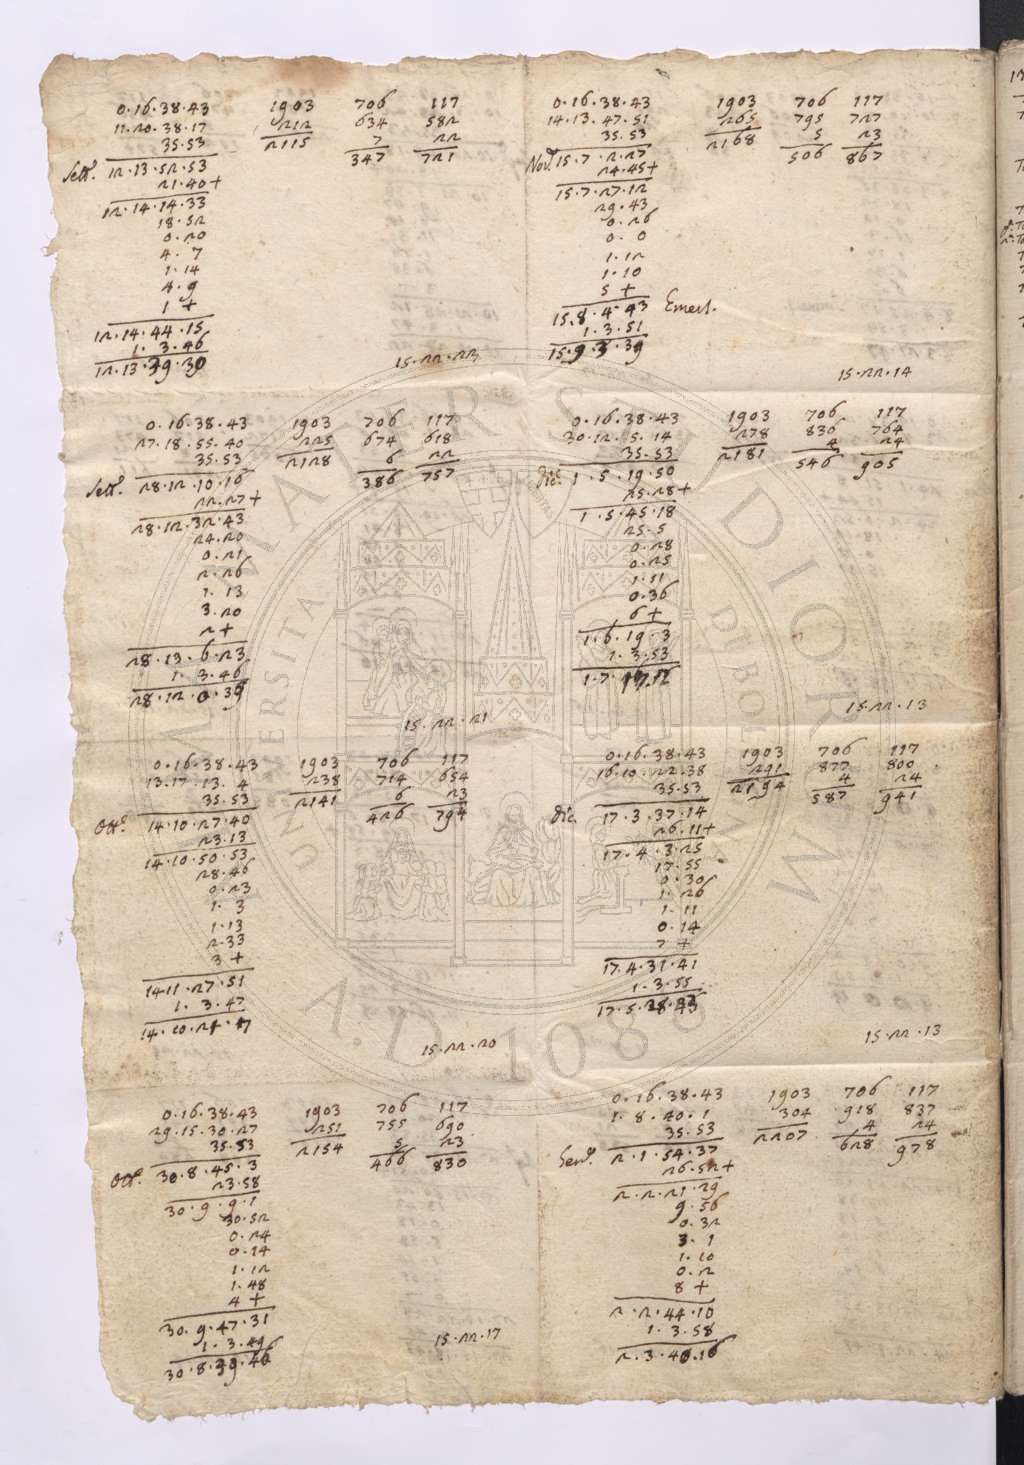 0.16.38.43 1903 706 117
11.20.38.17 212 634 582
35.53 2115 7 22
Sett.e 12.13.52.53 347 721
21.40+
12.14.14.33
18.52
0.20
4.7
1.14
4.9
1+
12.14.44.15
1.3.46
12.13.39.30
15.22.23
0.16.38.43 1903 706 117
27.18.55.40 225 674 618
35.53 2128 6 22
Sett.e 28.12.10.16 386 757
22.27+
28.12.32.43
24.20
0.21
2.26
1.13
3.20
2+
28.13.6.23
1.3.46
28.12.0.39
15.22.21
0.16.38.43 1903 706 117
13.17.13.4 238 714 654
35.53 2141 6 23
Ott.e 14.10.27.40 426 794
23.13
14.10.50.53
28.46
0.23
1.3
1.13
2.33
3+
14.11.27.51
1.3.47
15.22.20
0.16.38.43 1903 706 117
29.15.30.27 251 755 690
35.53 2154 5 23
Ott.e 30.8.45.3 466 830
23.58
30.9.9.1
30.52
0.24
0.14
1.12
1.48
4+
30.9.47.31
1.3.49
30.8.39.46
15.22.17
0.16.38.43 1903 706 117
14.13.47.51 265 795 727
35.53 2168 5 23
Nov.e 15.7.2.27 506 867
24.45+
15.7.27.12
29.43
0.26
0.0
1.12
1.10
5+
15.8.4.43 Emerl.
1.3.51
15.9.3.39
15.22.14
0.16.38.43 1903 706 117
30.12.5.14 278 836 764
35.53 2181 4 24
Dic. 1.5.19.50 546 905
25.28+
1.5.45.18
25.5
0.28
0.25
1.11
0.36
6+
1.6.19.3
1.3.53
15.22.13
0.16.38.43 1903 706 117
16.10.22.38 291 877 800
35.53 2194 4 24
Dic. 17.3.37.14 587 941
26.11+
17.4.3.25
17.55
0.30
1.26
1.11
0.14
7+
17.4.31.41
1.3.55
17.5.28.43
15.22.13
0.16.38.43 1903 706 117
1.8.40.1 304 918 837
35.53 2207 4 24
Gen.o 2.1.54.37 628 978
26.52+
2.2.21.29
9.56
0.32
3.1
1.10
0.2
8+
2.2.44.10
1.3.58
2.3.40.16
ALMA MATER STUDIORUM
UNIVERSITÀ DI BOLOGNA
A.D. 1088